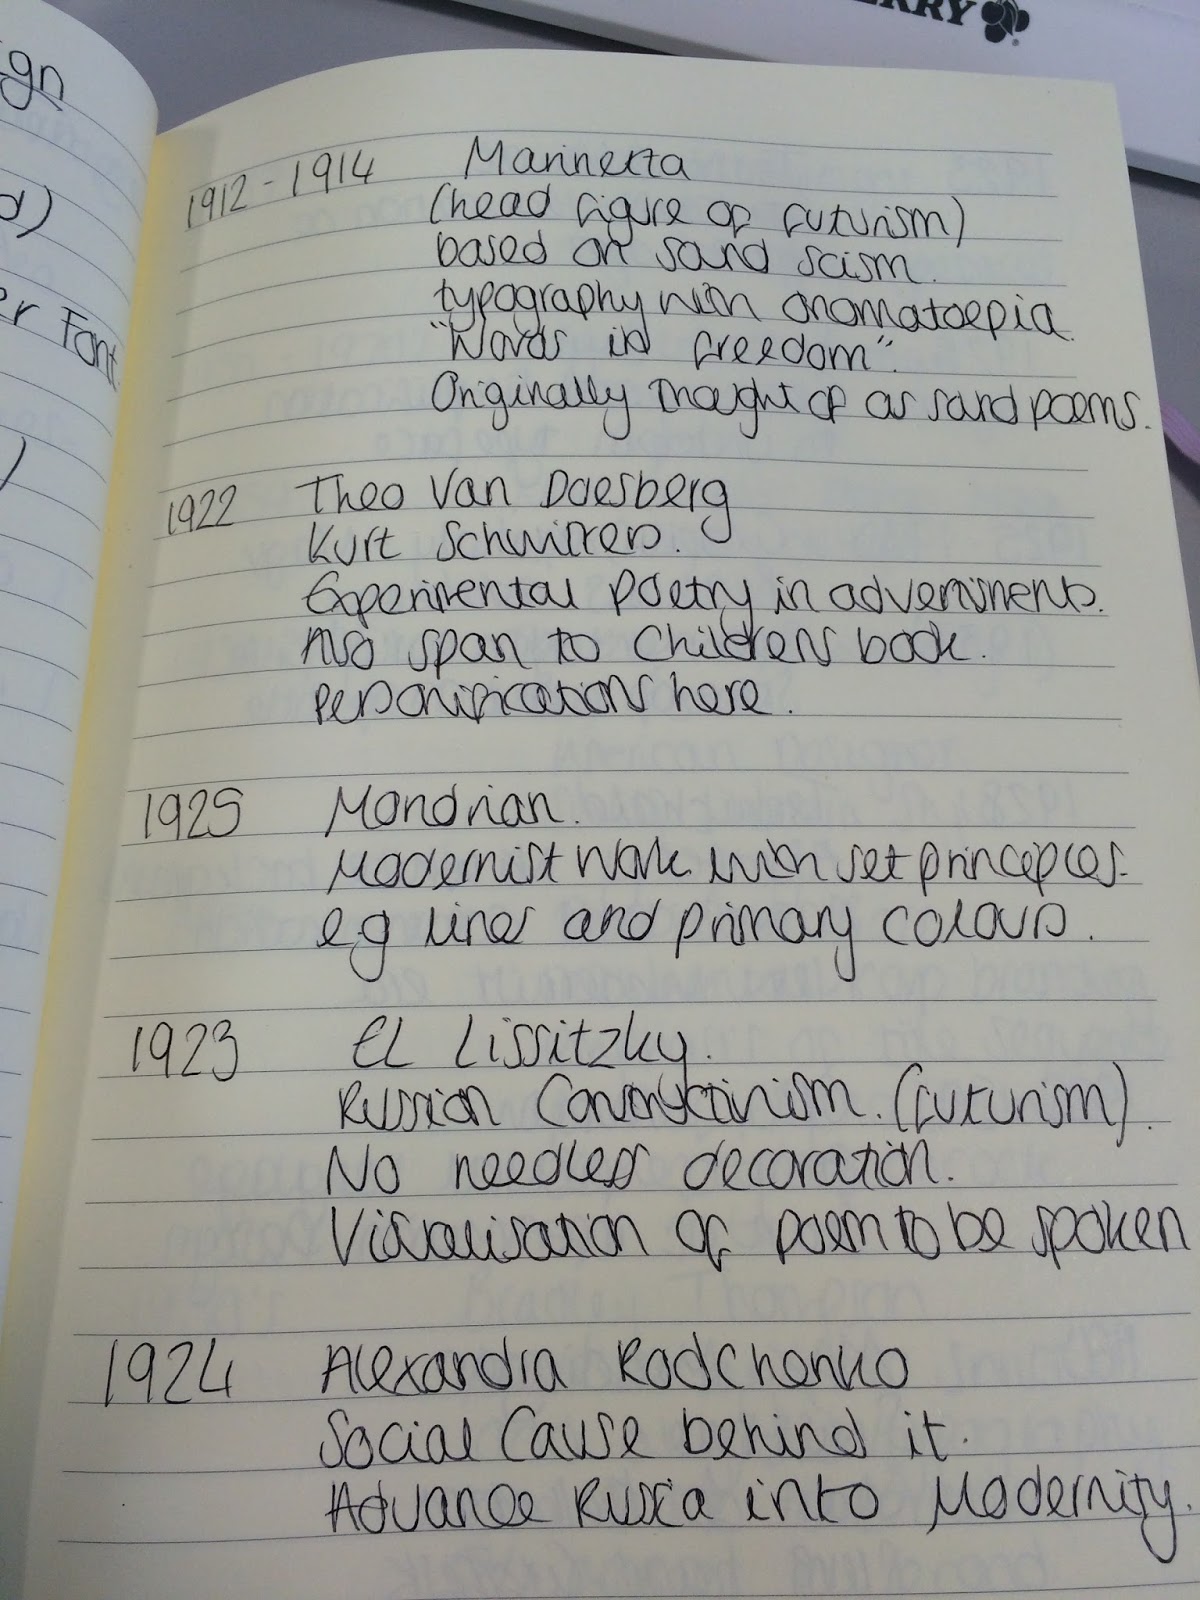 ERRY
ign
d)
er Font
)
1912-1914 Marinetta
(head figure of futurism)
based on sand scism.
typography with onomatoepia.
"Words in freedom".
Originally thought of as sand poems.
1922 Theo Van Doesberg
Kurt Schwitters.
Experimental Poetry in advertisments.
Also span to Childrens book.
personifications here.
1925 Mondrian.
Modernist work with set principles.
e.g lines and primary colours.
1923 El Lissitzky.
Russian Constructivism. (futurism).
No needless decoration.
Visualisation of poem to be spoken
1924 Alexandra Rodchenko
Social Cause behind it.
Advance Russia into Modernity.